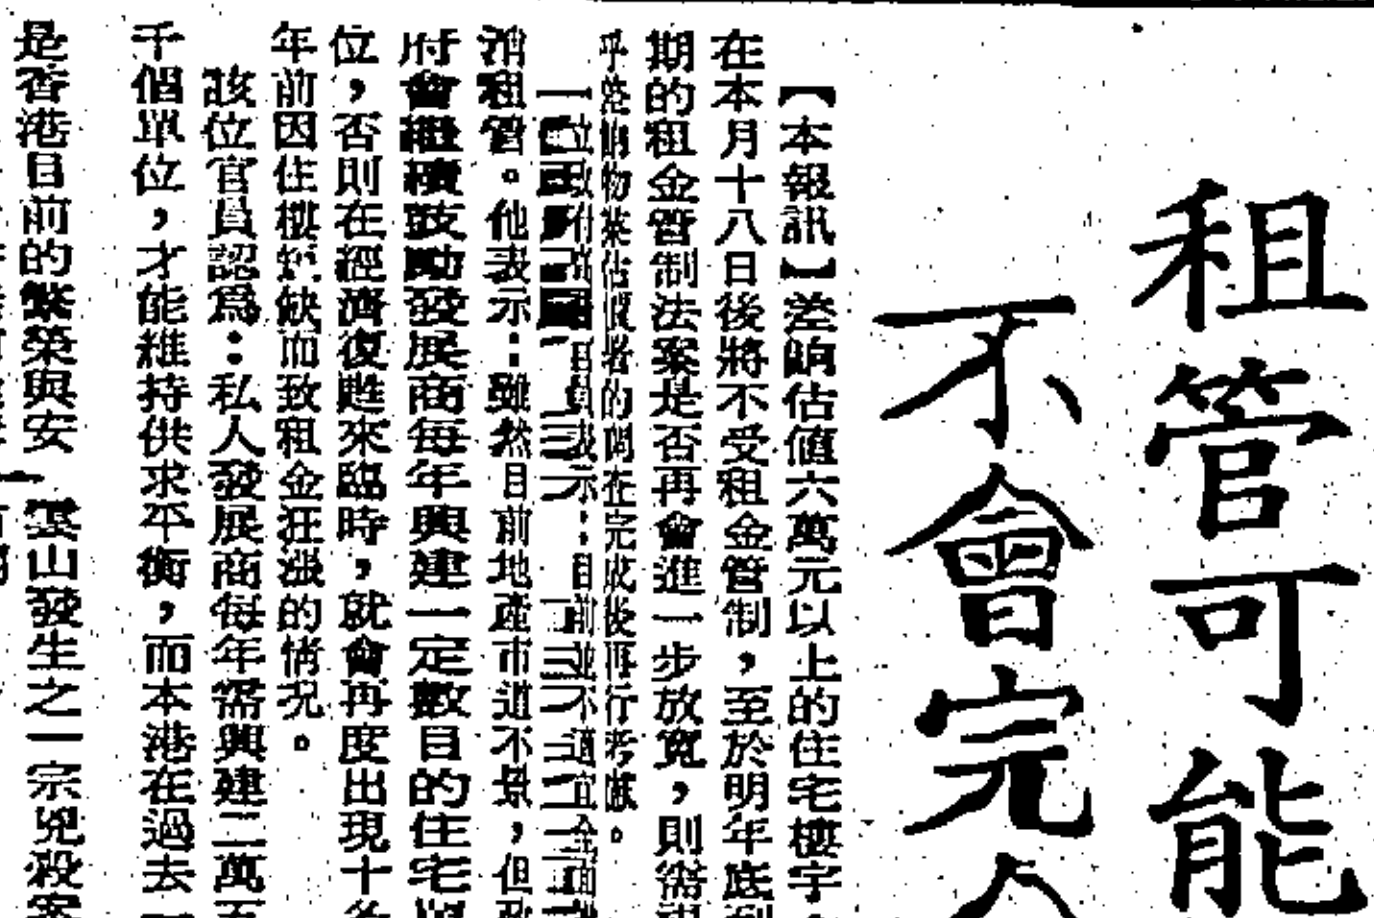 租管可能
不會完
【本報訊】差餉估值六萬元以上的住宅樓宇
在本月十八日後將不受租金管制，至於明年底到
期的租金管制法案是否再會進一步放寬，則需視
乎差餉物業估價者的調查完成後再行考慮。
一位政府高級官員表示：目前並不適宜全面
消租管。他表示：雖然目前地產市道不景，但政
府會繼續鼓勵發展商每年興建一定數目的住宅單
位，否則在經濟復甦來臨時，就會再度出現十多
年前因住樓短缺而致租金狂漲的情况。
該位官員認為：私人發展商每年需興建二萬五
千個單位，才能維持供求平衡，而本港在過去一
是香港目前的繁榮與安
雲山發生之一宗兇殺案